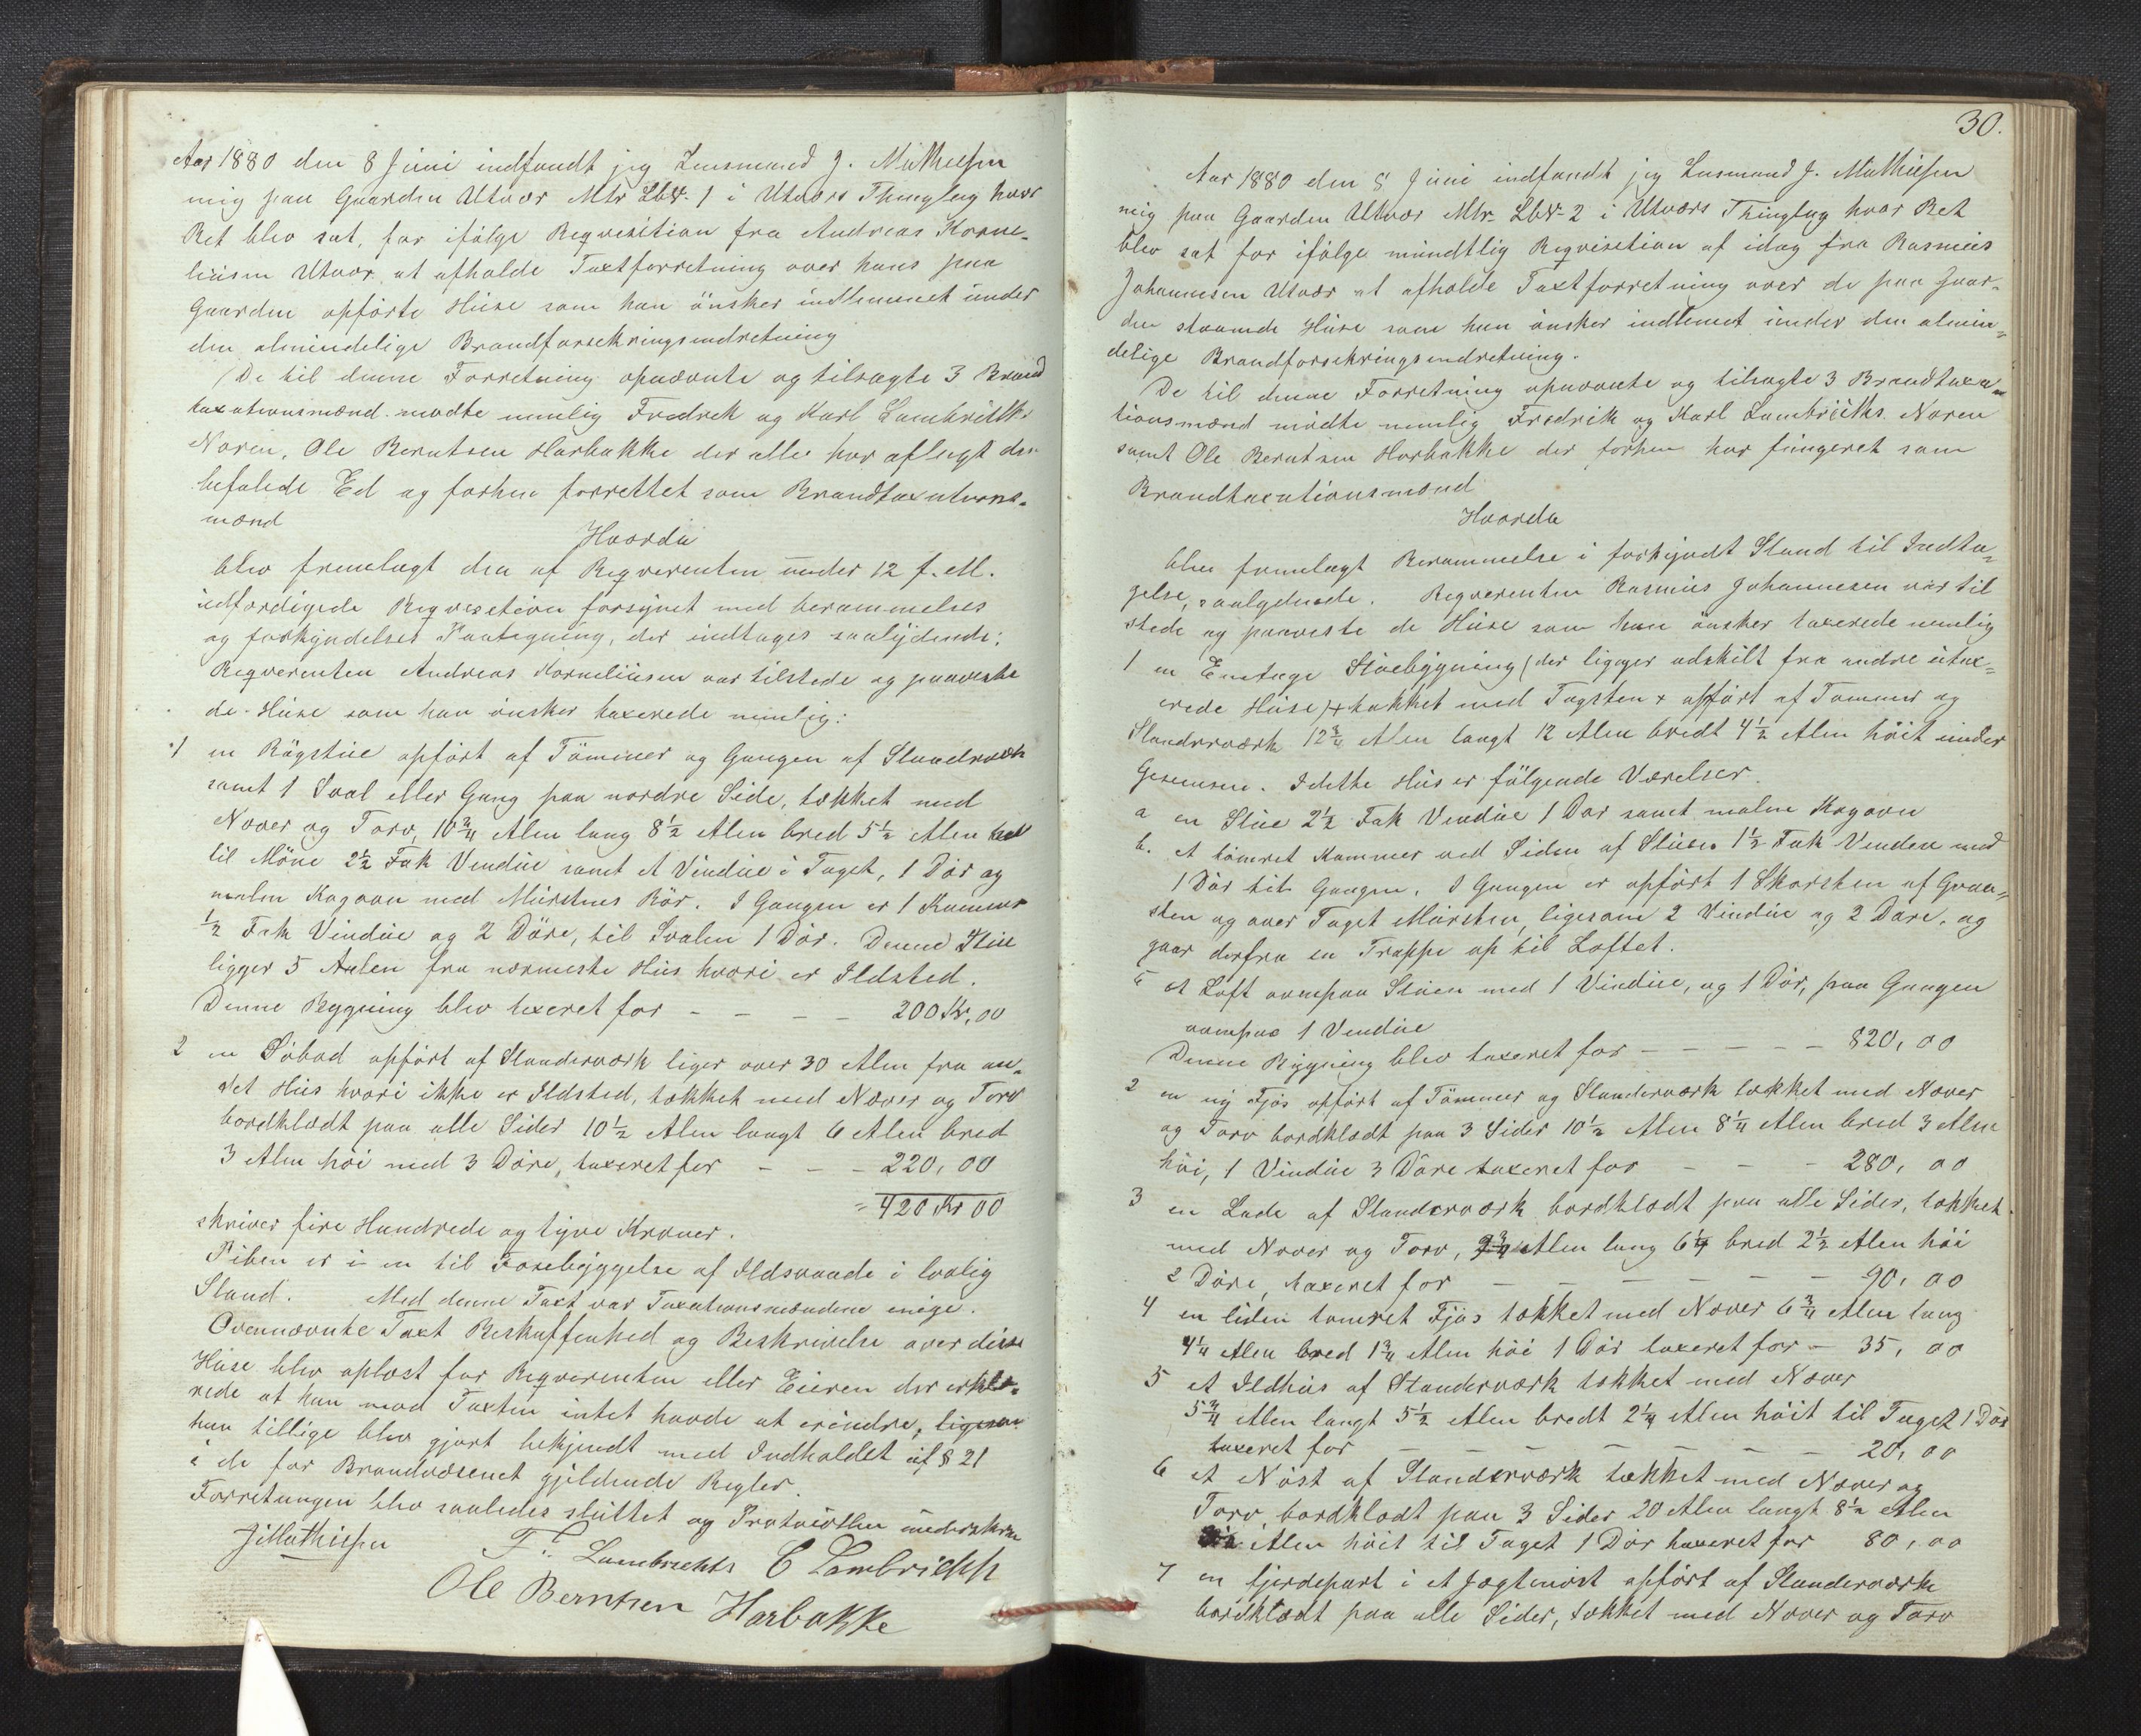 Aar 1880 den 8 Juni indfandt jeg Lensmand J. Mathiesen
mig paa Gaarden Utvær Mtr Lb№. 1 i Utværs Thinglag hvor
Ret blev sat, for ifölge Reqvisition fra Andreas Korne-
liusen Utvær at afholde Taxtforretning over hans paa
Gaarden opförte Huse som han önsker indlemmet under
den almindelige Brandforsekringsindretning
De til denne Forretning opnævnte og tilsagte 3 Brand
taxationsmænd mödte nemlig Fredrek og Karl Lambrichts
Noren, Ole Berntsen Harbakke der alle har aflagt den
befalede Ed og forhen forrettet som Brandtaxations-
mænd
Hvorda
blev fremlagt den af Reqvirenten under 12 f. M.
udfærdigede Reqvisition forsynet med berammelses
og forkyndelses Paategning, der indtages saalydende:
Reqvirenten Andreas Korneliusen var tilstede og paaviste
de Huse som han önsker taxerede nemlig:
1 en Rögstue opfört af Tömmer og Gangen af Standværk
samt 1 Sval eller Gang paa nordre Side, tækket med
Næver og Torv, 10 3/4 Alen lang 8 1/2 Alen bred 5 1/2 Alen höi
til Möne 2 1/2 Fak Vendue samt et Vindue i Taget, 1 Dör og
malm Kagovn med Murstens Rör. I Gangen er 1 Kammer
1/2 Fak Vindue og 2 Döre, til Svalen 1 Dör. Denne Stue
ligger 5 Aalen fra nærmeste Hus hvori er Ildsted.
Denne Bygning blev taxeret for - - - - 200 Kr, 00
2 en Söbod opfört af Standerværk liger over 30 Alen fra an-
det Hus hvori ikke er Ildsted, tækket med Næver og Torv
bordklædt paa alle Sider 10 1/2 Alen langt 6 Alen bred
3 Alen höi med 3 Döre, taxeret for - - - 220, 00
= 420 Kr 00
skriver fire Hundrede og tyve Kroner.
Piben er i en til Forebyggelse af Ildsvaade i lovlig
Stand. Med denne Taxt var Taxationsmændene enige.
Ovennævnte Taxt Beskaffenhed og Beskrivelse over disse
Huse blev oplæst for Reqvirenten eller Eieren der erklæ-
rede at han mod Taxten intet havde at erindre, ligesom
han tillige blev gjort bekjendt med Indholdet af § 21
i de for Brandvæsenet gjeldende Regler.
Forretningen blev saaledes sluttet og Protocollen underskreven
J Mathiesen F. Lambrechts C Lambrichts
Ole Berntsen Harbakke
30.
Aar 1880 den 8 Juni indfandt jeg Lensmand J. Mathiesen
mig paa Gaarden Utvær Mtr. Lb№ 2 i Utværs Thinglag hvor Ret
blev sat for ifölge mundtlig Reqvisition af idag fra Rasmus
Johannesen Utvær at afholde Taxtforretning over de paa Gaar-
den staaende Huse som han önsker indlemet under den almin-
delige Brandforsekringsindretning.
De til denne Forretning opnævnte og tilsagte 3 Brandtaxa-
tionsmænd mödte nemlig Fredrik og Karl Lambrichts Noren
samt Ole Berntsen Harbakke der forhen har fungeret som
Brandtaxationsmænd
Hvorda
blev fremlagt Berammelse i forkyndt Stand til Indta-
gelse, saalydende. Reqvirenten Rasmus Johannesen var til
stede og paaviste de Huse som han önsker taxerede nemlig
1 en Enetage Stuebygning (der ligger adskilt fra andre utax-
erede Huse) + tækket med Tagsten + opfört af Tömmer og
Standerværk 12 3/4 Alen langt 12 Alen bredt 4 1/2 Alen höit under
Gesemsen. I dette Hus er fölgende Værelser.
a en Stue 2 1/2 Fak Vendue 1 Dör samt malm Kagovn
b. et tömret Kammer ved Siden af Stuen 1 1/2 Fak Vendue med
1 Dör til Gangen. I Gangen er opfört 1 Skorsten af Graa-
sten og over Taget Mursten, ligesom 2 Vindue og 2 Döre, og
gaar derfra en Trappe op til Loftet.
c et Loft ovenpaa Stuen med 1 Vindue, og 1 Dör, paa Gangen
ovenpaa 1 Vendue
Denne Bygning blev taxeret for - - - - - 820, 00
2 en ny Fjös opfört af Tömmer og Standerværk tækket med Næver
og Torv bordklædt paa 3 Sider 10 1/2 Alen 8 1/4 Alen bred 3 Alen
höi, 1 Vindue 3 Döre taxeret for - - - 280, 00
3 en Lade af Standerværk bordklædt paa alle Sider, tækket
med Næver og Torv, 9 3/4 Alen lang 6 1/4 bred 2 1/2 Alen höi
2 Döre, taxeret for - - - - - - 90, 00
4 en liden tömret Fjös tækket med Næver 6 3/4 Alen lang
4 1/4 Alen bred 1 3/4 Alen höi 1 Dör taxeret for - 35, 00
5 et Ildhus af Standerværk tækket med Næver
5 3/4 Alen langt 5 1/2 Alen bredt 2 1/4 Alen höit til Taget 1 Dör
taxeret for - - - - - - - 20, 00
6 et Nöst af Standerværk tækket med Næver og
Torv, bordklædt paa 3 Sider 20 Alen langt 8 1/2 Alen
Alen höit til Taget 1 Dör taxeret for 80, 00
7 en fjerdepart i et Jagtenöst opfört af Standerværk
bordklædt paa alle Sider, tækket med Næver og Torv